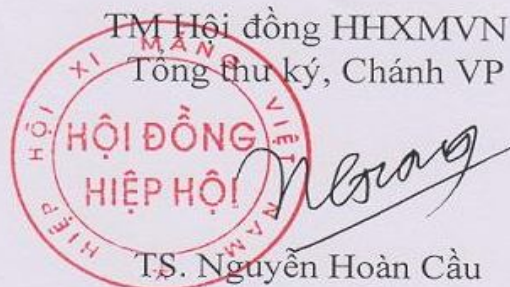 TM Hội đồng HHXMVN
Tổng thư ký, Chánh VP
HIỆP HỘI XI MĂNG VIỆT NAM
HỘI ĐỒNG
HIỆP HỘI
TS. Nguyễn Hoàn Cầu